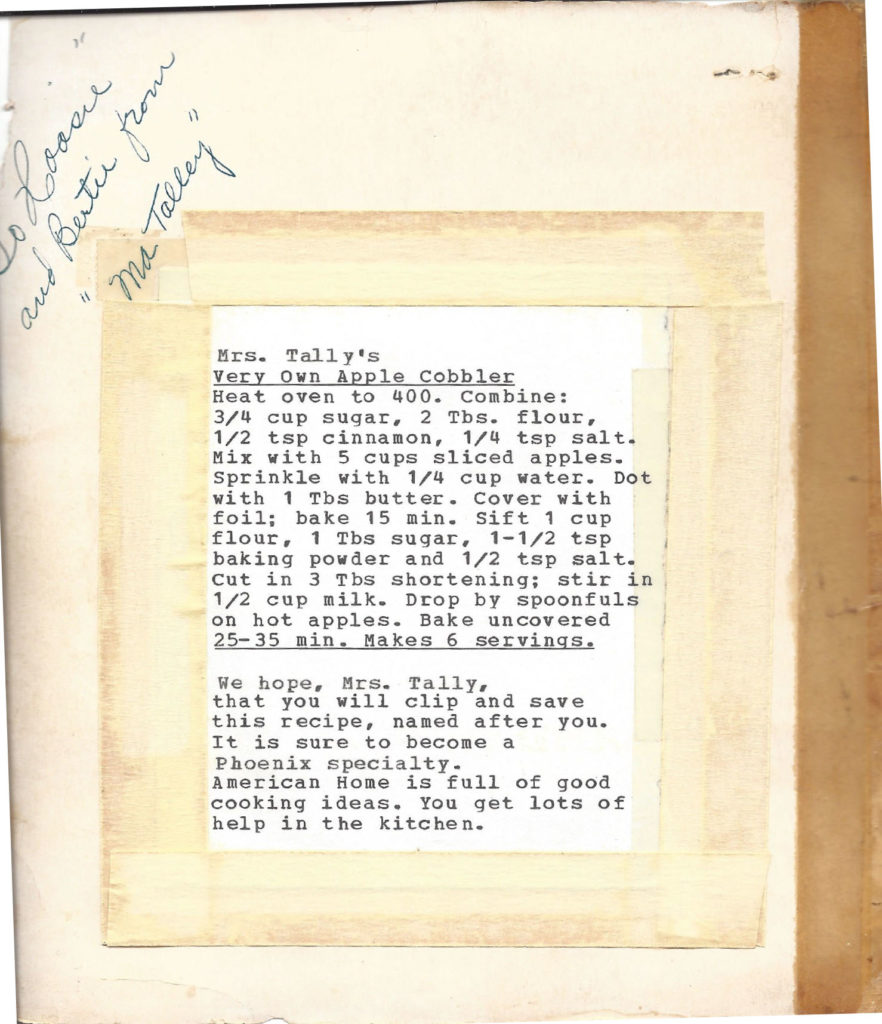 To Loosie"
and Bertie from
"Ma Talley"
Mrs. Tally's
Very Own Apple Cobbler
Heat oven to 400. Combine:
3/4 cup sugar, 2 Tbs. flour,
1/2 tsp cinnamon, 1/4 tsp salt.
Mix with 5 cups sliced apples.
Sprinkle with 1/4 cup water. Dot
with 1 Tbs butter. Cover with
foil; bake 15 min. Sift 1 cup
flour, 1 Tbs sugar, 1-1/2 tsp
baking powder and 1/2 tsp salt.
Cut in 3 Tbs shortening; stir in
1/2 cup milk. Drop by spoonfuls
on hot apples. Bake uncovered
25-35 min. Makes 6 servings.
We hope, Mrs. Tally,
that you will clip and save
this recipe, named after you.
It is sure to become a
Phoenix specialty.
American Home is full of good
cooking ideas. You get lots of
help in the kitchen.